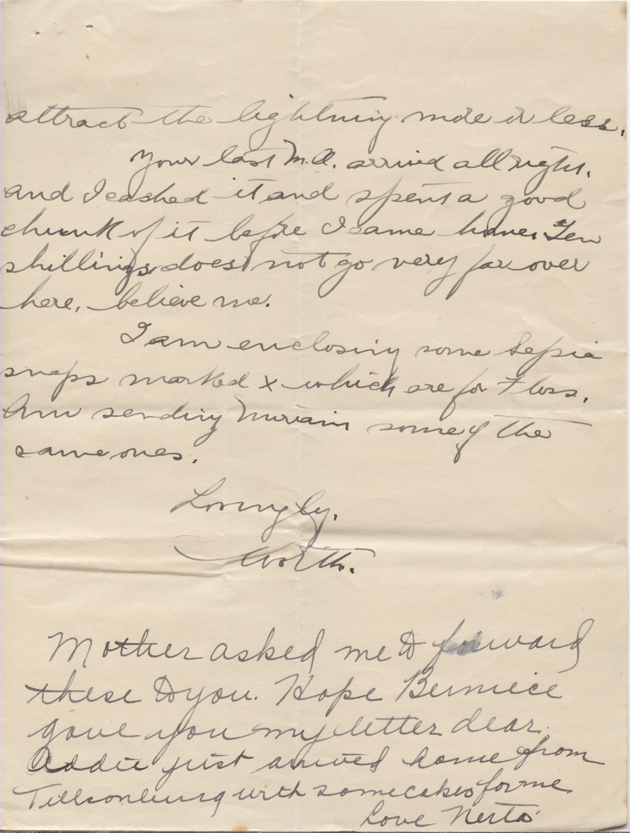 attract the lightning more or less.
Your last M.O. arrived all right.
and I cashed it and spent a good
chunk of it before I came home. Ten
shillings does not go very far over
here, believe me.
I am enclosing some Sepia
snaps marked x which are for Floss.
Am sending Miriam some of the
same ones.
Lovingly.
Worth.
Mother asked me to forward
these to you. Hope Bernice
gave you my letter dear.
Addie just arrived home from
Tillsonburg with some cakes for me
Love Nerta